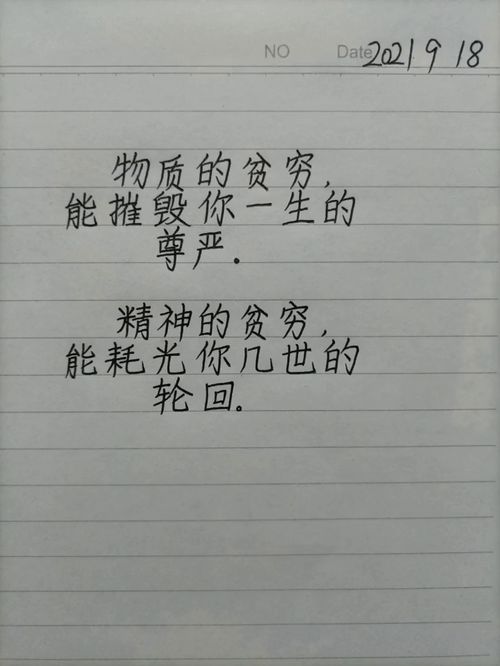 NO Date 2021 9 18
物质的贫穷，
能摧毁你一生的
尊严.
精神的贫穷，
能耗光你几世的
轮回。